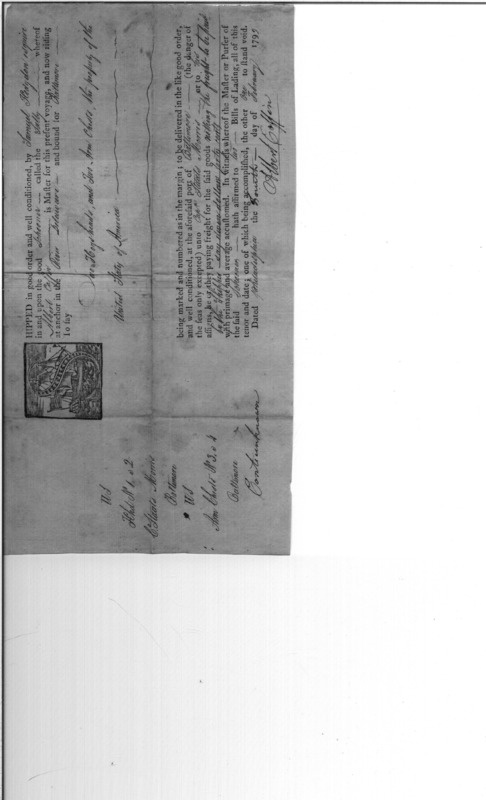 HIPPED in good order and well conditioned, by Samuel Hodgdon esquire
in and upon the good Schooner called the Molly whereof
Albert Coffin is Master for this present voyage, and now riding
at anchor in the River Delaware and bound for Baltimore
To say
and Two Arm Chests, the property of the
United States of America
being marked and numbered as in the margin; to be delivered in the like good order,
and well conditioned, at the aforesaid port of Baltimore (the danger of
the seas only excepted) unto
assigns, he or they paying freight for the said goods nothing the freight to be paid
by the Shipper say
with primage and average accustomed. In witness whereof the Master or Purser of
the said Schooner hath affirmed to two Bills of Lading, all of this
tenor and date; one of which being accomplished, the other to stand void.
Dated Philadelphia the fourth day of February 1795
Albert Coffin
US
No 1 & 2
Baltimore
US
Arm Chests No 3 & 4
Baltimore
Cont unknown